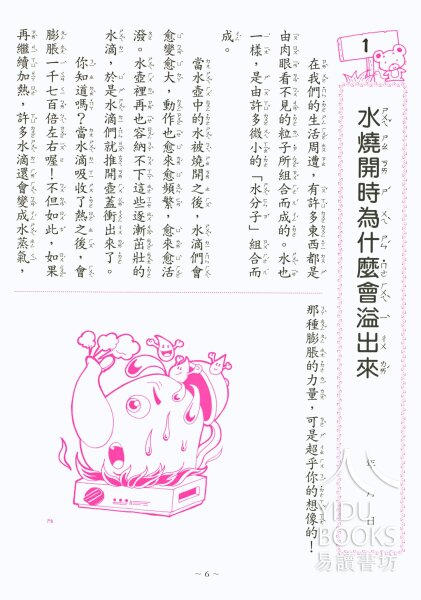 1
水燒開時為什麼會溢出來
年 月 日
在我們的生活周遭，有許多東西都是
由肉眼看不見的粒子所組合而成的。水也
一樣，是由許多微小的「水分子」組合而
成。
當水壺中的水被燒開之後，水滴們會
愈變愈大，動作也愈來愈頻繁，愈來愈活
潑。水壺裡再也容納不下這些逐漸茁壯的
水滴，於是水滴們就推開壺蓋衝出來了。
你知道嗎？當水滴吸收了熱之後，會
膨脹一千七百倍左右喔！不但如此，如果
再繼續加熱，許多水滴還會變成水蒸氣，
那種膨脹的力量，可是超乎你的想像的！
~ 6 ~
YIDU
BOOKS
易讀書坊